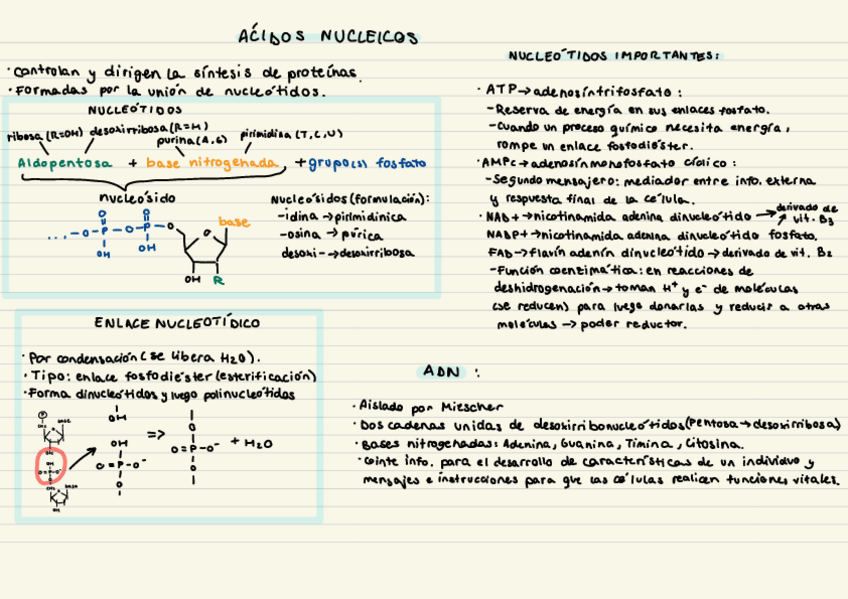 ÁCIDOS NUCLEICOS
· Controlan y dirigen la síntesis de proteínas.
· Formadas por la unión de nucleótidos.
NUCLEÓTIDOS
ribosa (R=OH) desoxirribosa (R=H)
purina (A, G) pirimidina (T, C, U)
Aldopentosa + base nitrogenada + grupo(s) fosfato
nucleósido
base
... -O-P-O-P-O
O O
OH OH
O
OH R
Nucleósidos (formulación):
-idina → pirimidínica
-osina → púrica
desoxi- → desoxirribosa
ENLACE NUCLEOTÍDICO
· Por condensación (se libera H2O).
· Tipo: enlace fosfodiéster (esterificación)
· Forma dinucleótidos y luego polinucleótidos
P
base
OH
OH
O=P-O-
O
=>
O
O=P-O-
O
+ H2O
base
NUCLEÓTIDOS IMPORTANTES:
· ATP → adenosíntrifosfato:
- Reserva de energía en sus enlaces fosfato.
- Cuando un proceso químico necesita energía,
rompe un enlace fosfodiéster.
· AMPc → adenosínmonofosfato cíclico:
- Segundo mensajero: mediador entre info. externa
y respuesta final de la célula.
· NAD+ → nicotinamida adenina dinucleótido → derivado de vit. B3
NADP+ → nicotinamida adenina dinucleótido fosfato.
FAD → flavín adenín dinucleótido → derivado de vit. B2
- Función coenzimática: en reacciones de
deshidrogenación → toman H+ y e- de moléculas
(se reducen) para luego donarlas y reducir a otras
moléculas → poder reductor.
ADN :
· Aislado por Miescher
· Dos cadenas unidas de desoxirribonucleótidos (Pentosa → desoxirribosa)
· Bases nitrogenadas: Adenina, Guanina, Timina, Citosina.
info. para el desarrollo de características de un individuo y
mensajes e instrucciones para que las células realicen funciones vitales.